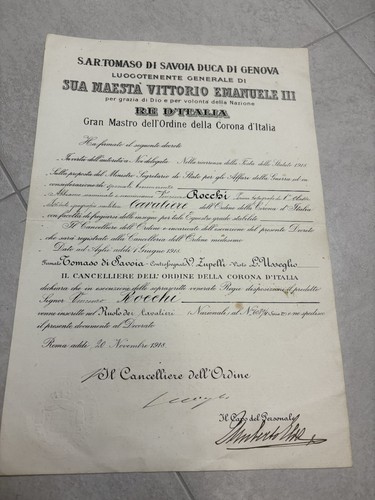 S.A.R. TOMASO DI SAVOIA DUCA DI GENOVA
LUOGOTENENTE GENERALE DI
SUA MAESTÀ VITTORIO EMANUELE III
per grazia di Dio e per volontà della Nazione
RE D'ITALIA
Gran Mastro dell'Ordine della Corona d'Italia
Ha firmato il seguente decreto
In virtù dell'autorità a Noi delegata Nella ricorrenza della Festa dello Statuto 1918
Sulla proposta del Ministro Segretario di Stato per gli Affari della Guerra ed in
considerazione di
Abbiamo nominato e Rocchi
Cavaliere dell'Ordine della Corona d'Italia
con facoltà di fregiarsi delle insegne per tale Equestre grado stabilite
Il Cancelliere dell'Ordine è incaricato dell'esecuzione del presente Decreto
che sarà registrato alla Cancelleria dell'Ordine medesimo
Dato ad addì 1 Giugno 1918
Firmato Tomaso di Savoia Controfirmato V. Zupelli Visto
IL CANCELLIERE DELL'ORDINE DELLA CORONA D'ITALIA
dichiara che in esecuzione delle soprascritte Regie disposizioni il predetto
Signor Rocchi
venne inscritto nel Ruolo dei Cavalieri Nazionali al N. e ne spedisce
il presente documento al Decorato
Roma addì 20 Novembre 1918
Il Cancelliere dell'Ordine
Il Capo del Personale